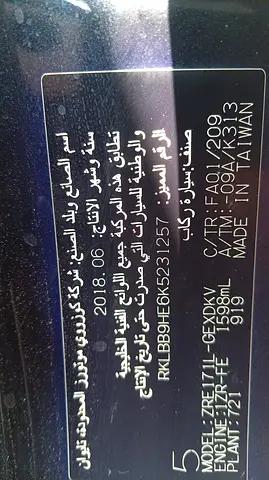 اسم الصانع وبلد الصنع: شركة كوزوي موتورز المحدودة، تايوان
سنة وشهر الانتاج: 2018.06
تطابق هذه المركبة جميع اللوائح الفنية الخليجية
والوطنية للسيارات التي صدرت حتى تاريخ الإنتاج
الرقم المميز: RKLBB9HE6K5231257
صنف: سيارة ركاب
5
MODEL: ZRE171L-GEXDKV C/TR: FA01/209
ENGINE: 1ZR-FE 1598mL A/TM: -09A/K313
PLANT: 721 919 MADE IN TAIWAN